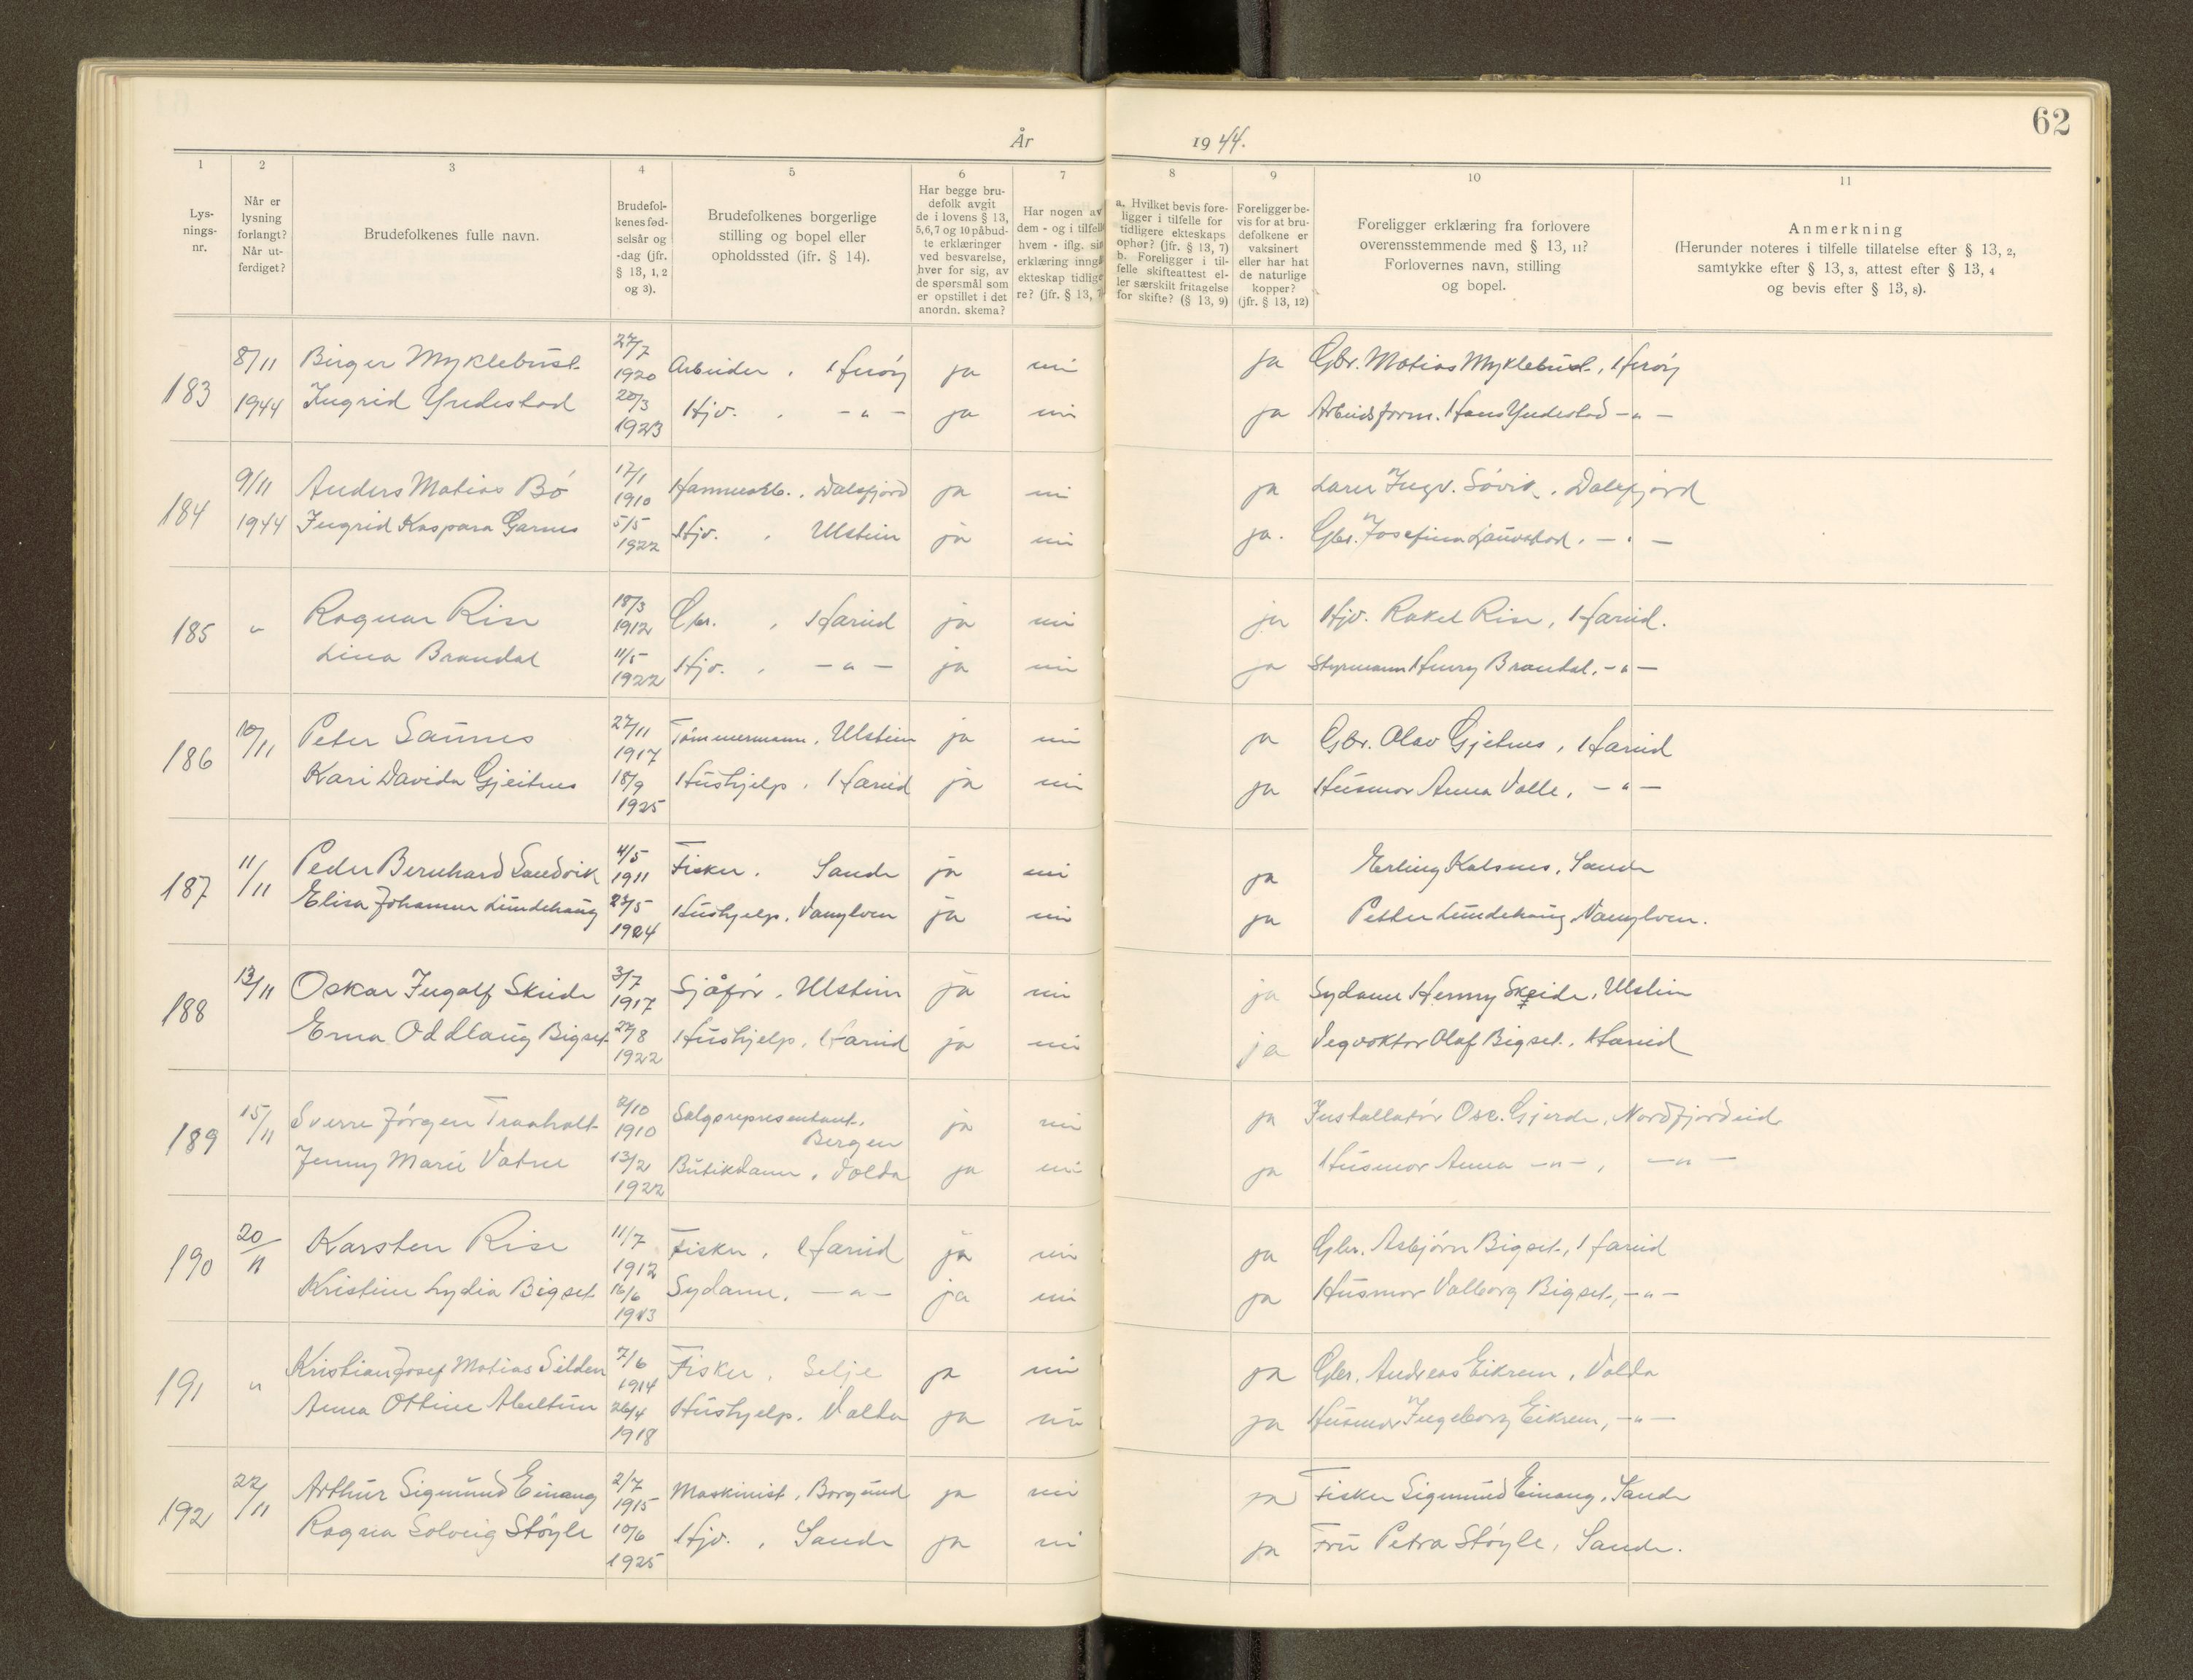 62
År 1944.
1 2 3 4 5 6 7 8 9 10 11
Lysnings-nr.
Når er lysning forlangt? Når utferdiget?
Brudefolkenes fulle navn.
Brudefolkenes fødselsår og -dag (jfr. § 13, 1, 2 og 3).
Brudefolkenes borgerlige stilling og bopel eller opholdssted (jfr. § 14).
Har begge brudefolk avgit de i lovens § 13, 5,6,7 og 10 påbudte erklæringer ved besvarelse, hver for sig, av de spørsmål som er opstillet i det anordn. skema?
Har nogen av dem - og i tilfelle hvem - iflg. sin erklæring inngå ekteskap tidligere? (jfr. § 13, 7
a. Hvilket bevis foreligger i tilfelle for tidligere ekteskaps ophør? (jfr. § 13, 7)
b. Foreligger i tilfelle skifteattest eller særskilt fritagelse for skifte? (§ 13, 9)
Foreligger bevis for at brudefolkene er vaksinert eller har hat de naturlige kopper? (jfr. § 13, 12)
Foreligger erklæring fra forlovere overensstemmende med § 13, 11? Forlovernes navn, stilling og bopel.
Anmerkning
(Herunder noteres i tilfelle tillatelse efter § 13, 2, samtykke efter § 13, 3, attest efter § 13, 4 og bevis efter § 13, 8).
183 8/11 Birger Myklebust 27/7 1920 Arbeider, Herøy ja nei ja Gbr. Matias Myklebust, Herøy
1944 Ingrid Yndestad 20/3 1923 Hjv. , -"- ja nei ja Arbeidsform. Hans Yndestad -"-
184 9/11 Anders Matias Bö 17/1 1910 Dalsfjord ja nei ja Lærer Ingv. Sövik, Dalsfjord
1944 Ingrid Kaspara Garnes 5/5 1922 Hjv. , Ulstein ja nei ja. Gbr. Josefine Lauvstad, -"-
185 " Ragnar Rise 18/3 1912 Gbr. , Hareid ja nei ja Hjv. Rakel Rise, Hareid.
Lina Brandal 11/5 1922 Hjv. , -"- ja nei ja Styrmann Henry Brandal, -"-
186 10/11 Peter Saunes 27/11 1917 Tömmermann, Ulstein ja nei ja Gbr. Olav Gjetnes, Hareid
Kari Davida Gjeitnes 18/9 1925 Hushjelp, Hareid ja nei ja Husmor Anna Valle, -"-
187 11/11 Peder Bernhard Sandvik 4/5 1911 Fisker. Sande ja nei ja Erling Kalsnes, Sande
Elisa Johanne Lundehaug 1924 Hushjelp, Vanylven ja nei ja Petter Lundehaug Vanylven.
188 13/11 Oskar Ingolf Skeide 3/7 1917 Sjåfør, Ulstein ja nei ja Sydame Henny Skeide, Ulstein
Erna Oddlaug Bigset 27/8 1922 Hushjelp, Hareid ja nei ja Vegvoktar Olaf Bigset, Hareid
189 15/11 Sverre Jörgen Traaholt 2/10 1910 Salgsrepresentant, Bergen ja nei ja Installatör Osc. Gjerde, Nordfjordeid
Jenny Marie Vatne 13/2 1922 Butikdame, Volda ja nei ja Husmor Anna -"-, -"-
190 20/11 Karsten Rise 11/7 1912 Fisker, Hareid ja nei ja Gbr. Asbjörn Bigset, Hareid
Kristine Lydia Bigset 16/6 1913 Sydame, -"- ja nei ja Husmor Valborg Bigset, -"-
191 " Kristian Josef Matias Silden 7/6 1914 Fisker, Selje ja nei ja Gbr. Andreas Eikrem, Volda
Anna Ottine Aheltun 26/4 1918 Hushjelp, Volda ja nei ja Husmor Ingeborg Eikrem, -"-
192 22/11 Arthur Sigmund Einang 2/7 1915 Maskinist, Borgund ja nei ja Fisker Sigmund Einang, Sande
Ragna Solveig Støyle 10/6 1925 Hjv. , Sande ja nei ja Fru Petra Støyle, Sande.